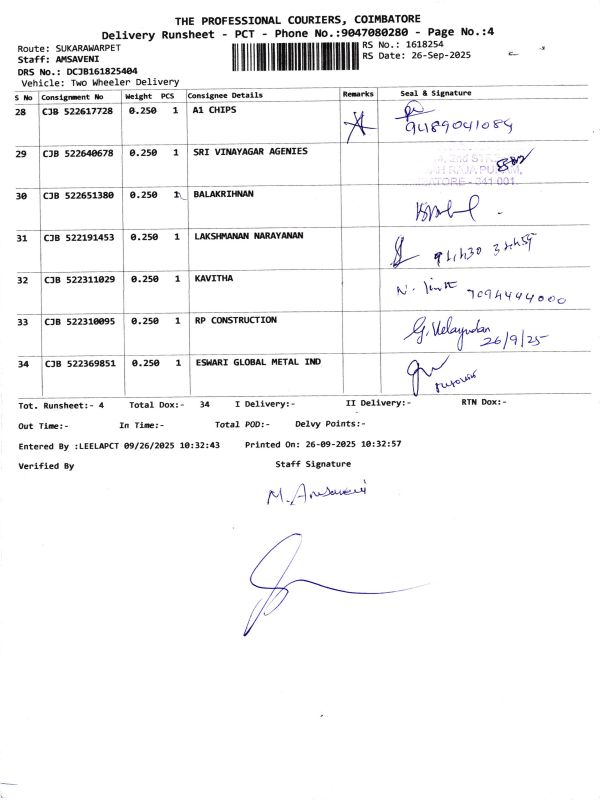 THE PROFESSIONAL COURIERS, COIMBATORE
Delivery Runsheet - PCT - Phone No.:9047080280 - Page No.:4
Route: SUKARAWARPET
RS No.: 1618254
Staff: AMSAVENI
RS Date: 26-Sep-2025
DRS No.: DCJB161825404
Vehicle: Two Wheeler Delivery
S No Consignment No Weight PCS Consignee Details Remarks Seal & Signature
28 CJB 522617728 0.250 1 A1 CHIPS
9489041084
29 CJB 522640678 0.250 1 SRI VINAYAGAR AGENIES
30 CJB 522651380 0.250 1 BALAKRIHNAN
31 CJB 522191453 0.250 1 LAKSHMANAN NARAYANAN
32 CJB 522311029 0.250 1 KAVITHA
7094444000
33 CJB 522310095 0.250 1 RP CONSTRUCTION G. Velayudan
26/9/25
34 CJB 522369851 0.250 1 ESWARI GLOBAL METAL IND
Tot. Runsheet:- 4 Total Dox:- 34 I Delivery:- II Delivery:- RTN Dox:-
Out Time:- In Time:- Total POD:- Delvy Points:-
Entered By :LEELAPCT 09/26/2025 10:32:43 Printed On: 26-09-2025 10:32:57
Verified By Staff Signature
M. Amsaveni